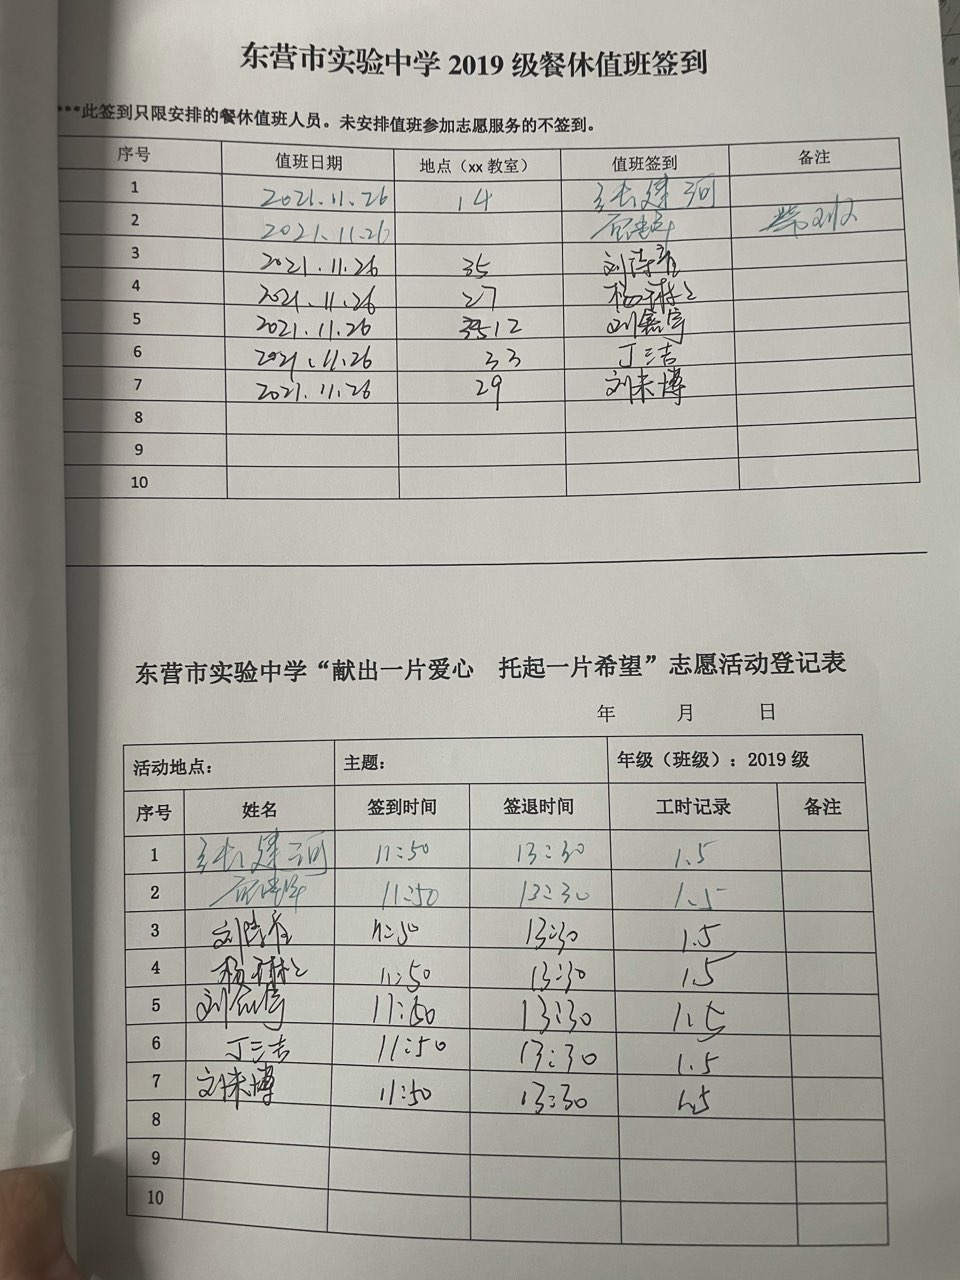 东营市实验中学 2019 级餐休值班签到
***此签到只限安排的餐休值班人员。未安排值班参加志愿服务的不签到。
序号 值班日期 地点（xx 教室） 值班签到 备注
1 2021.11.26 14 张建河
2 2021.11.26
3 2021.11.26 35
4 2021.11.26 27
5 2021.11.26 12
6 2021.11.26 33 丁三吉
7 2021.11.26 29 刘来博
8
9
10
东营市实验中学“献出一片爱心 托起一片希望”志愿活动登记表
年 月 日
活动地点： 主题： 年级（班级）：2019 级
序号 姓名 签到时间 签退时间 工时记录 备注
1 张建河 11:50 13:30 1.5
2 11:50 13:30 1.5
3 11:50 13:30 1.5
4 11:50 13:30 1.5
5 11:50 13:30 1.5
6 丁三吉 11:50 13:30 1.5
7 刘来博 11:50 13:30 1.5
8
9
10